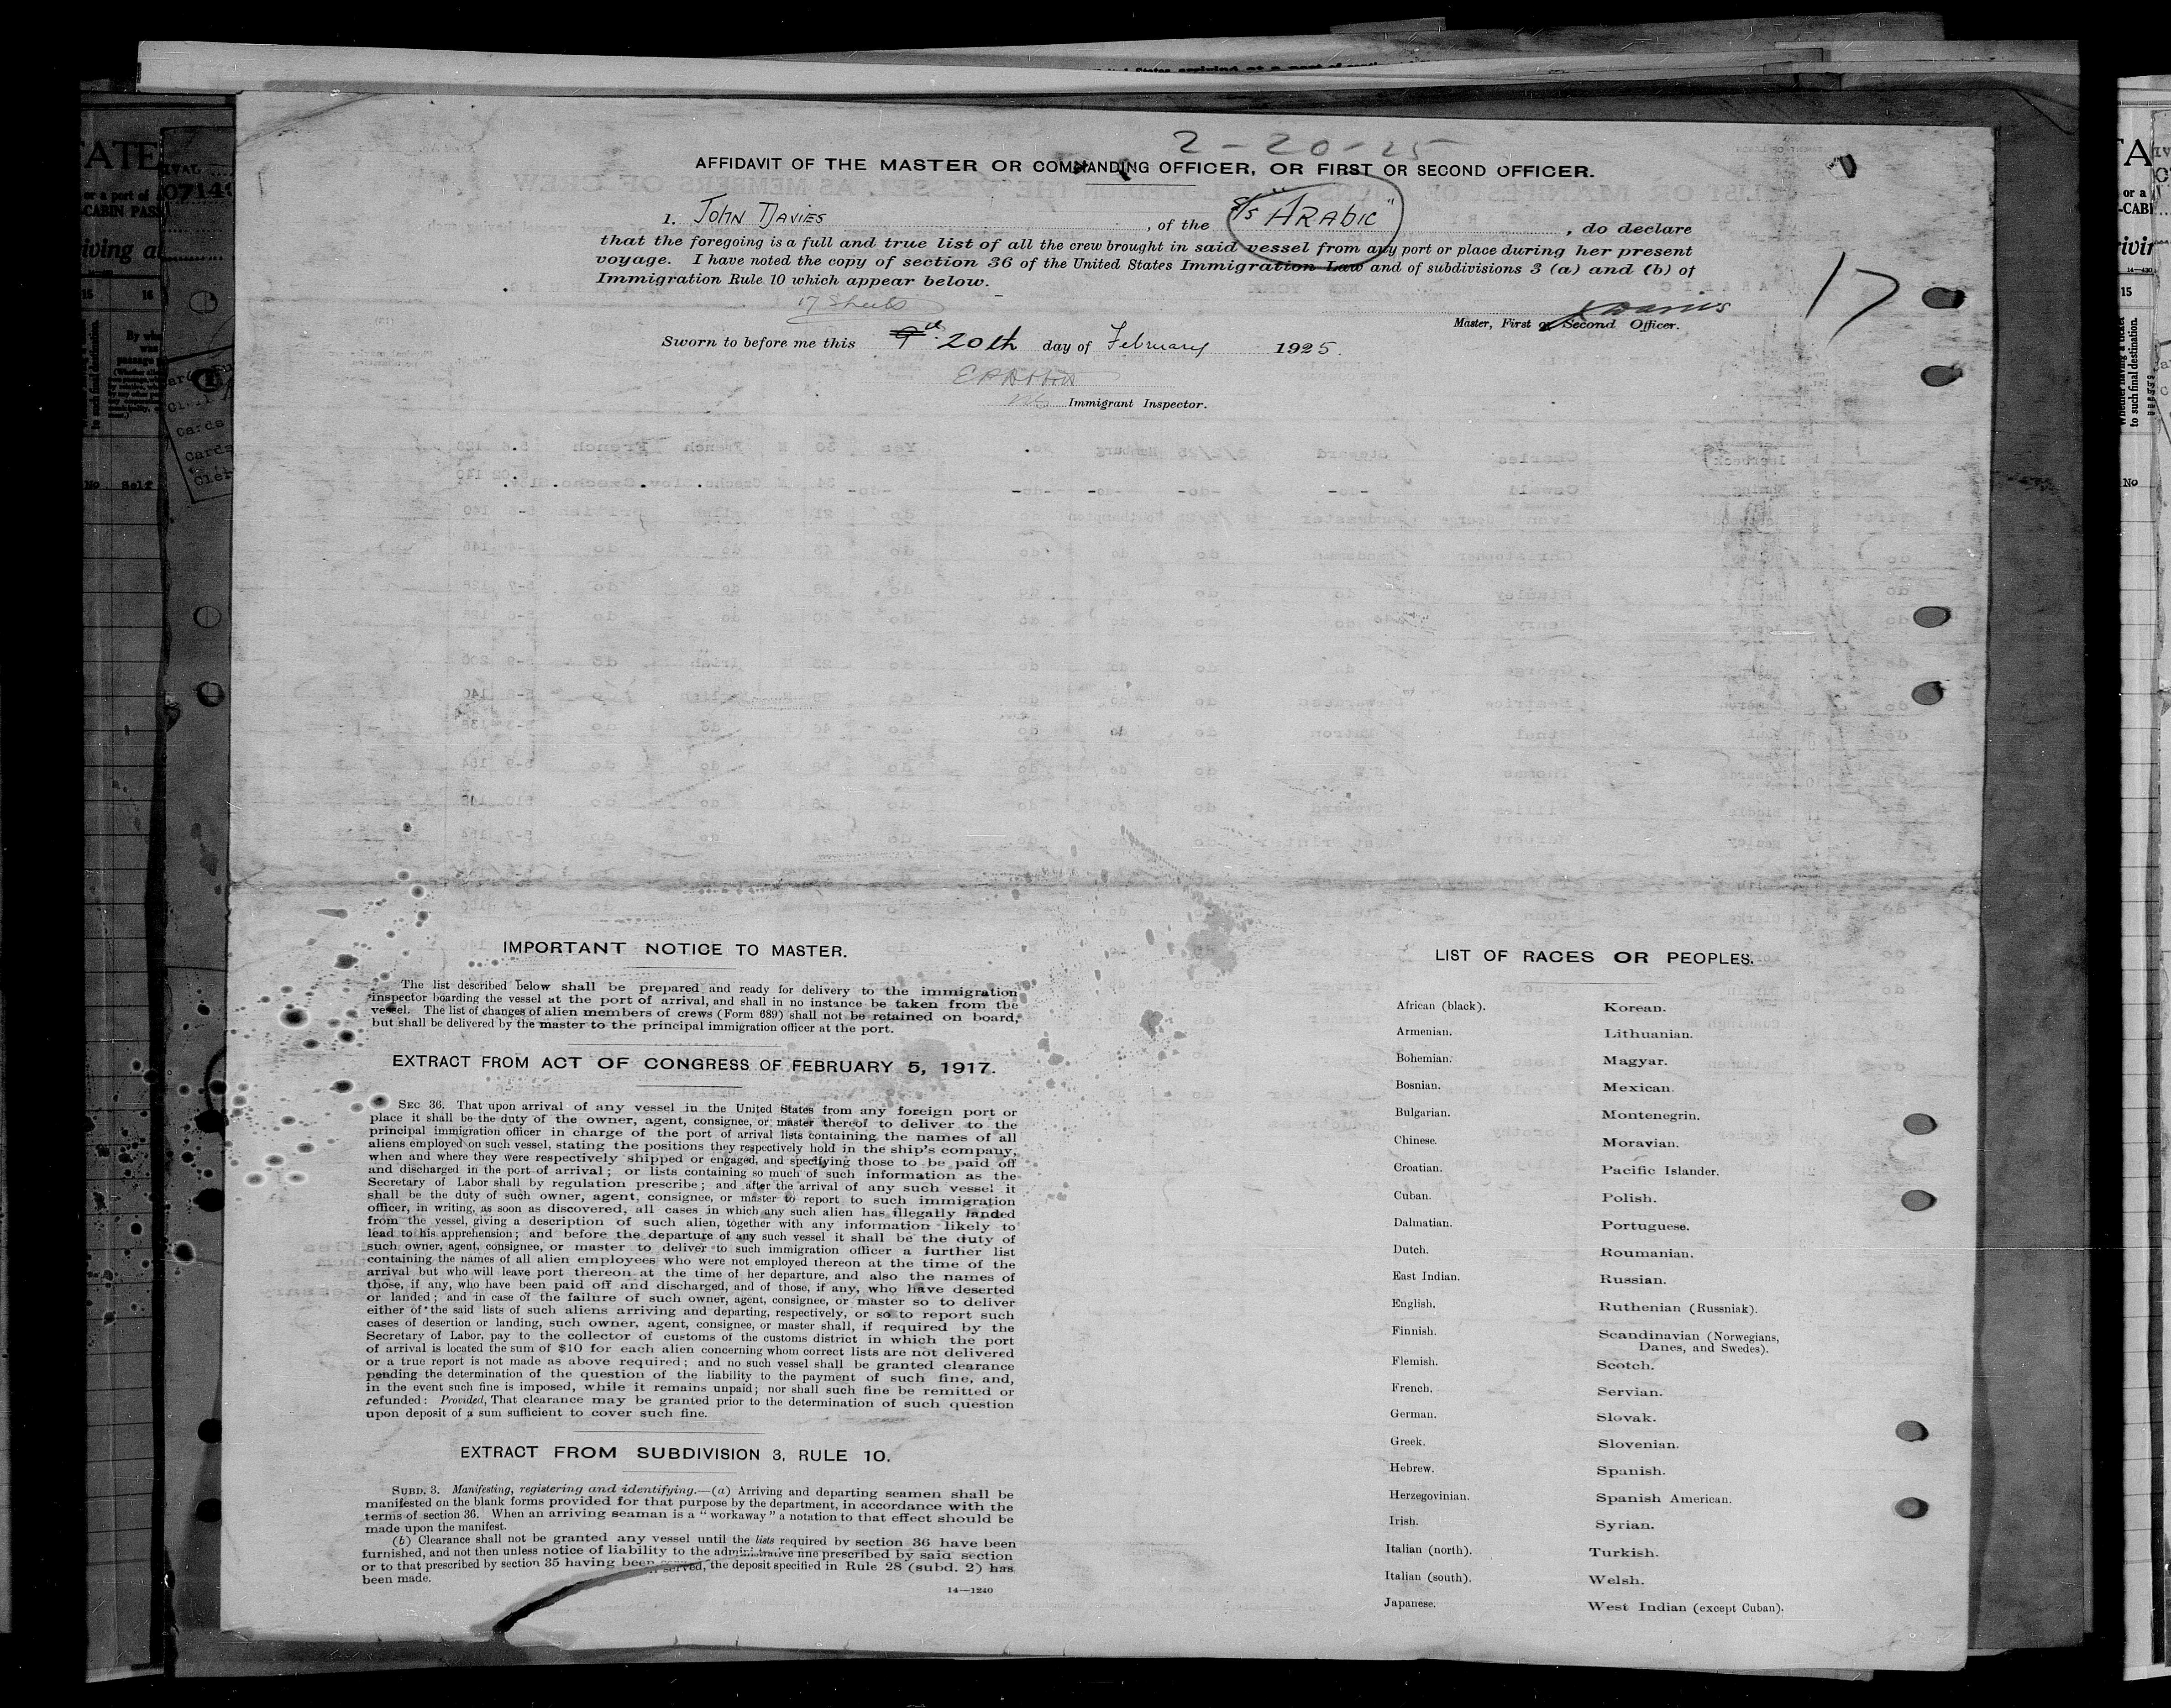 2-20-25
AFFIDAVIT OF THE MASTER OR COMMANDING OFFICER, OR FIRST OR SECOND OFFICER.
I. JOHN DAVIES, of the S/S "ARABIC", do declare
that the foregoing is a full and true list of all the crew brought in said vessel from any port or place during her present
voyage. I have noted the copy of section 36 of the United States Immigration Law and of subdivisions 3 (a) and (b) of
Immigration Rule 10 which appear below.
17 Sheets
17
Master, First or Second Officer.
Sworn to before me this 20th day of February 1925.
Immigrant Inspector.
IMPORTANT NOTICE TO MASTER.
The list described below shall be prepared and ready for delivery to the immigration
inspector boarding the vessel at the port of arrival, and shall in no instance be taken from the
vessel. The list of changes of alien members of crews (Form 689) shall not be retained on board,
but shall be delivered by the master to the principal immigration officer at the port.
EXTRACT FROM ACT OF CONGRESS OF FEBRUARY 5, 1917.
SEC 36. That upon arrival of any vessel in the United States from any foreign port or
place it shall be the duty of the owner, agent, consignee, or master thereof to deliver to the
principal immigration officer in charge of the port of arrival lists containing the names of all
aliens employed on such vessel, stating the positions they respectively hold in the ship's company,
when and where they were respectively shipped or engaged, and specifying those to be paid off
and discharged in the port of arrival; or lists containing so much of such information as the
Secretary of Labor shall by regulation prescribe; and after the arrival of any such vessel it
shall be the duty of such owner, agent, consignee, or master to report to such immigration
officer, in writing, as soon as discovered, all cases in which any such alien has illegally landed
from the vessel, giving a description of such alien, together with any information likely to
lead to his apprehension; and before the departure of any such vessel it shall be the duty of
such owner, agent, consignee, or master to deliver to such immigration officer a further list
containing the names of all alien employees who were not employed thereon at the time of the
arrival but who will leave port thereon at the time of her departure, and also the names of
those, if any, who have been paid off and discharged, and of those, if any, who have deserted
or landed; and in case of the failure of such owner, agent, consignee, or master so to deliver
either of the said lists of such aliens arriving and departing, respectively, or so to report such
cases of desertion or landing, such owner, agent, consignee, or master shall, if required by the
Secretary of Labor, pay to the collector of customs of the customs district in which the port
of arrival is located the sum of $10 for each alien concerning whom correct lists are not delivered
or a true report is not made as above required; and no such vessel shall be granted clearance
pending the determination of the question of the liability to the payment of such fine, and,
in the event such fine is imposed, while it remains unpaid; nor shall such fine be remitted or
refunded: Provided, That clearance may be granted prior to the determination of such question
upon deposit of a sum sufficient to cover such fine.
EXTRACT FROM SUBDIVISION 3, RULE 10.
SUBD. 3. Manifesting, registering and identifying.—(a) Arriving and departing seamen shall be
manifested on the blank forms provided for that purpose by the department, in accordance with the
terms of section 36. When an arriving seaman is a "workaway" a notation to that effect should be
made upon the manifest.
(b) Clearance shall not be granted any vessel until the lists required by section 36 have been
furnished, and not then unless notice of liability to the administrative fine prescribed by said section
or to that prescribed by section 35 having been served, the deposit specified in Rule 28 (subd. 2) has
been made.
14—1240
LIST OF RACES OR PEOPLES.
African (black).
Armenian.
Bohemian.
Bosnian.
Bulgarian.
Chinese.
Croatian.
Cuban.
Dalmatian.
Dutch.
East Indian.
English.
Finnish.
Flemish.
French.
German.
Greek.
Hebrew.
Herzegovinian.
Irish.
Italian (north).
Italian (south).
Japanese.
Korean.
Lithuanian.
Magyar.
Mexican.
Montenegrin.
Moravian.
Pacific Islander.
Polish.
Portuguese.
Roumanian.
Russian.
Ruthenian (Russniak).
Scandinavian (Norwegians,
Danes, and Swedes).
Scotch.
Servian.
Slovak.
Slovenian.
Spanish.
Spanish American.
Syrian.
Turkish.
Welsh.
West Indian (except Cuban).